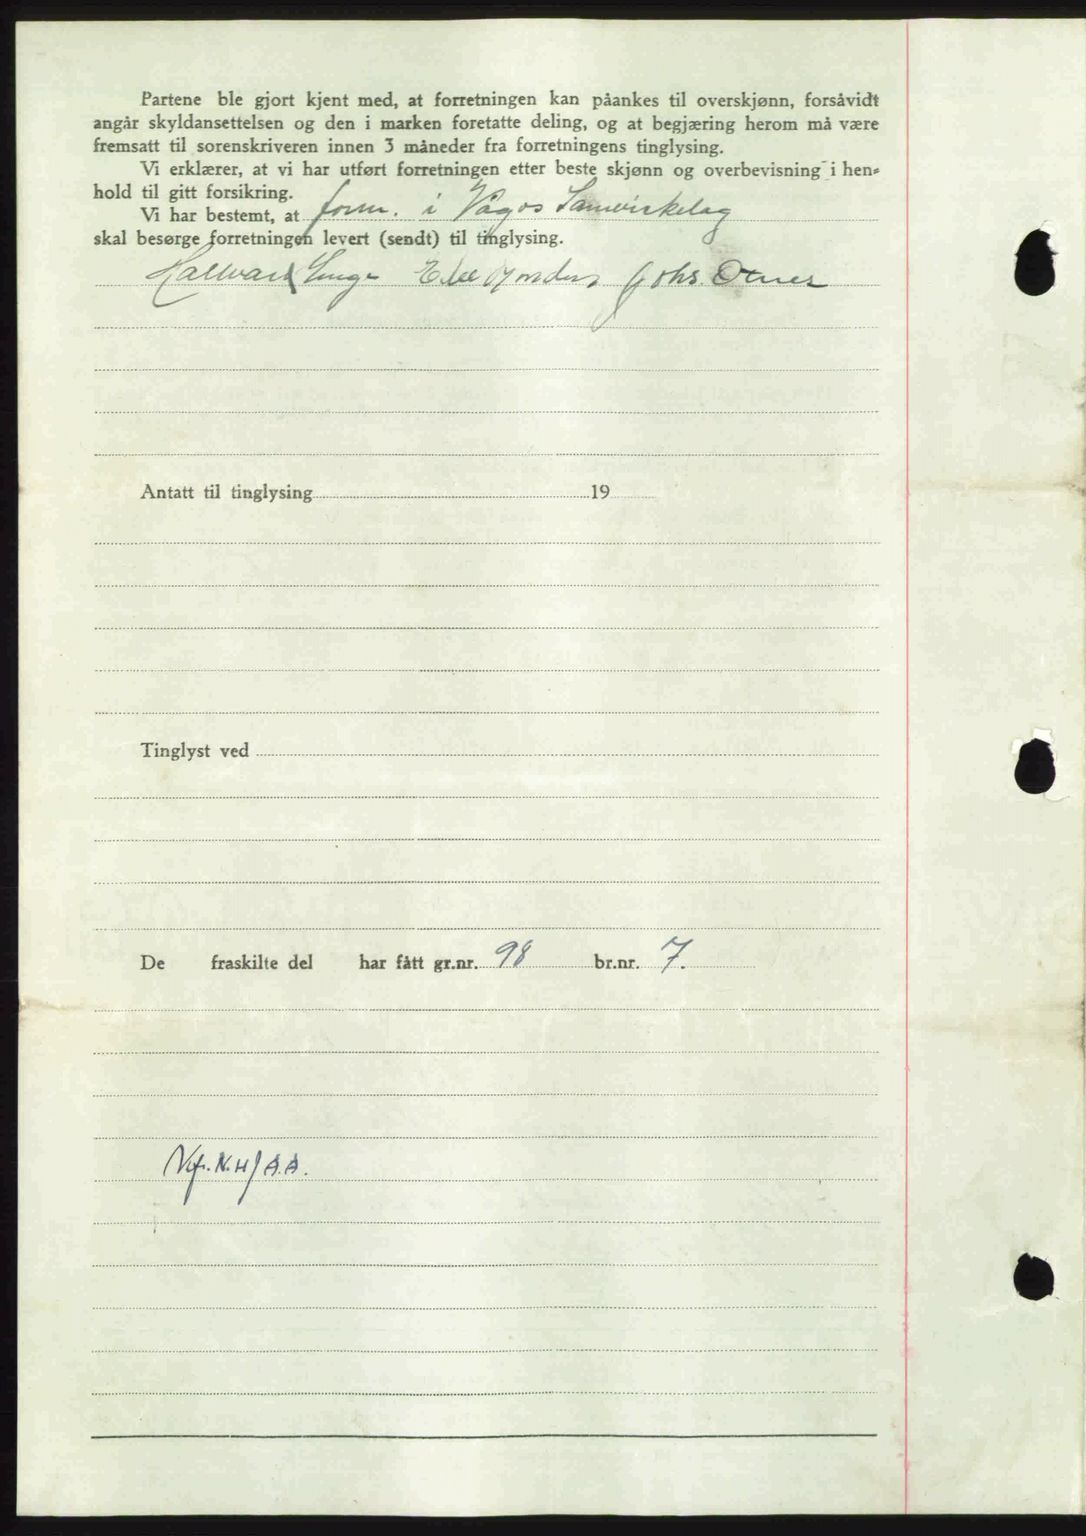 Partene ble gjort kjent med, at forretningen kan påankes til overskjønn, forsåvidt
angår skyldansettelsen og den i marken foretatte deling, og at begjæring herom må være
fremsatt til sorenskriveren innen 3 måneder fra forretningens tinglysing.
Vi erklærer, at vi har utført forretningen etter beste skjønn og overbevisning i hen-
hold til gitt forsikring.
Vi har bestemt, at form. i Vågos Samvirkelag
skal besørge forretningen levert (sendt) til tinglysing.
Halvard Enge Johs. Otnes
Antatt til tinglysing 19
Tinglyst ved
De fraskilte del har fått gr.nr. 98 br.nr. 7.
N.H/A.A.